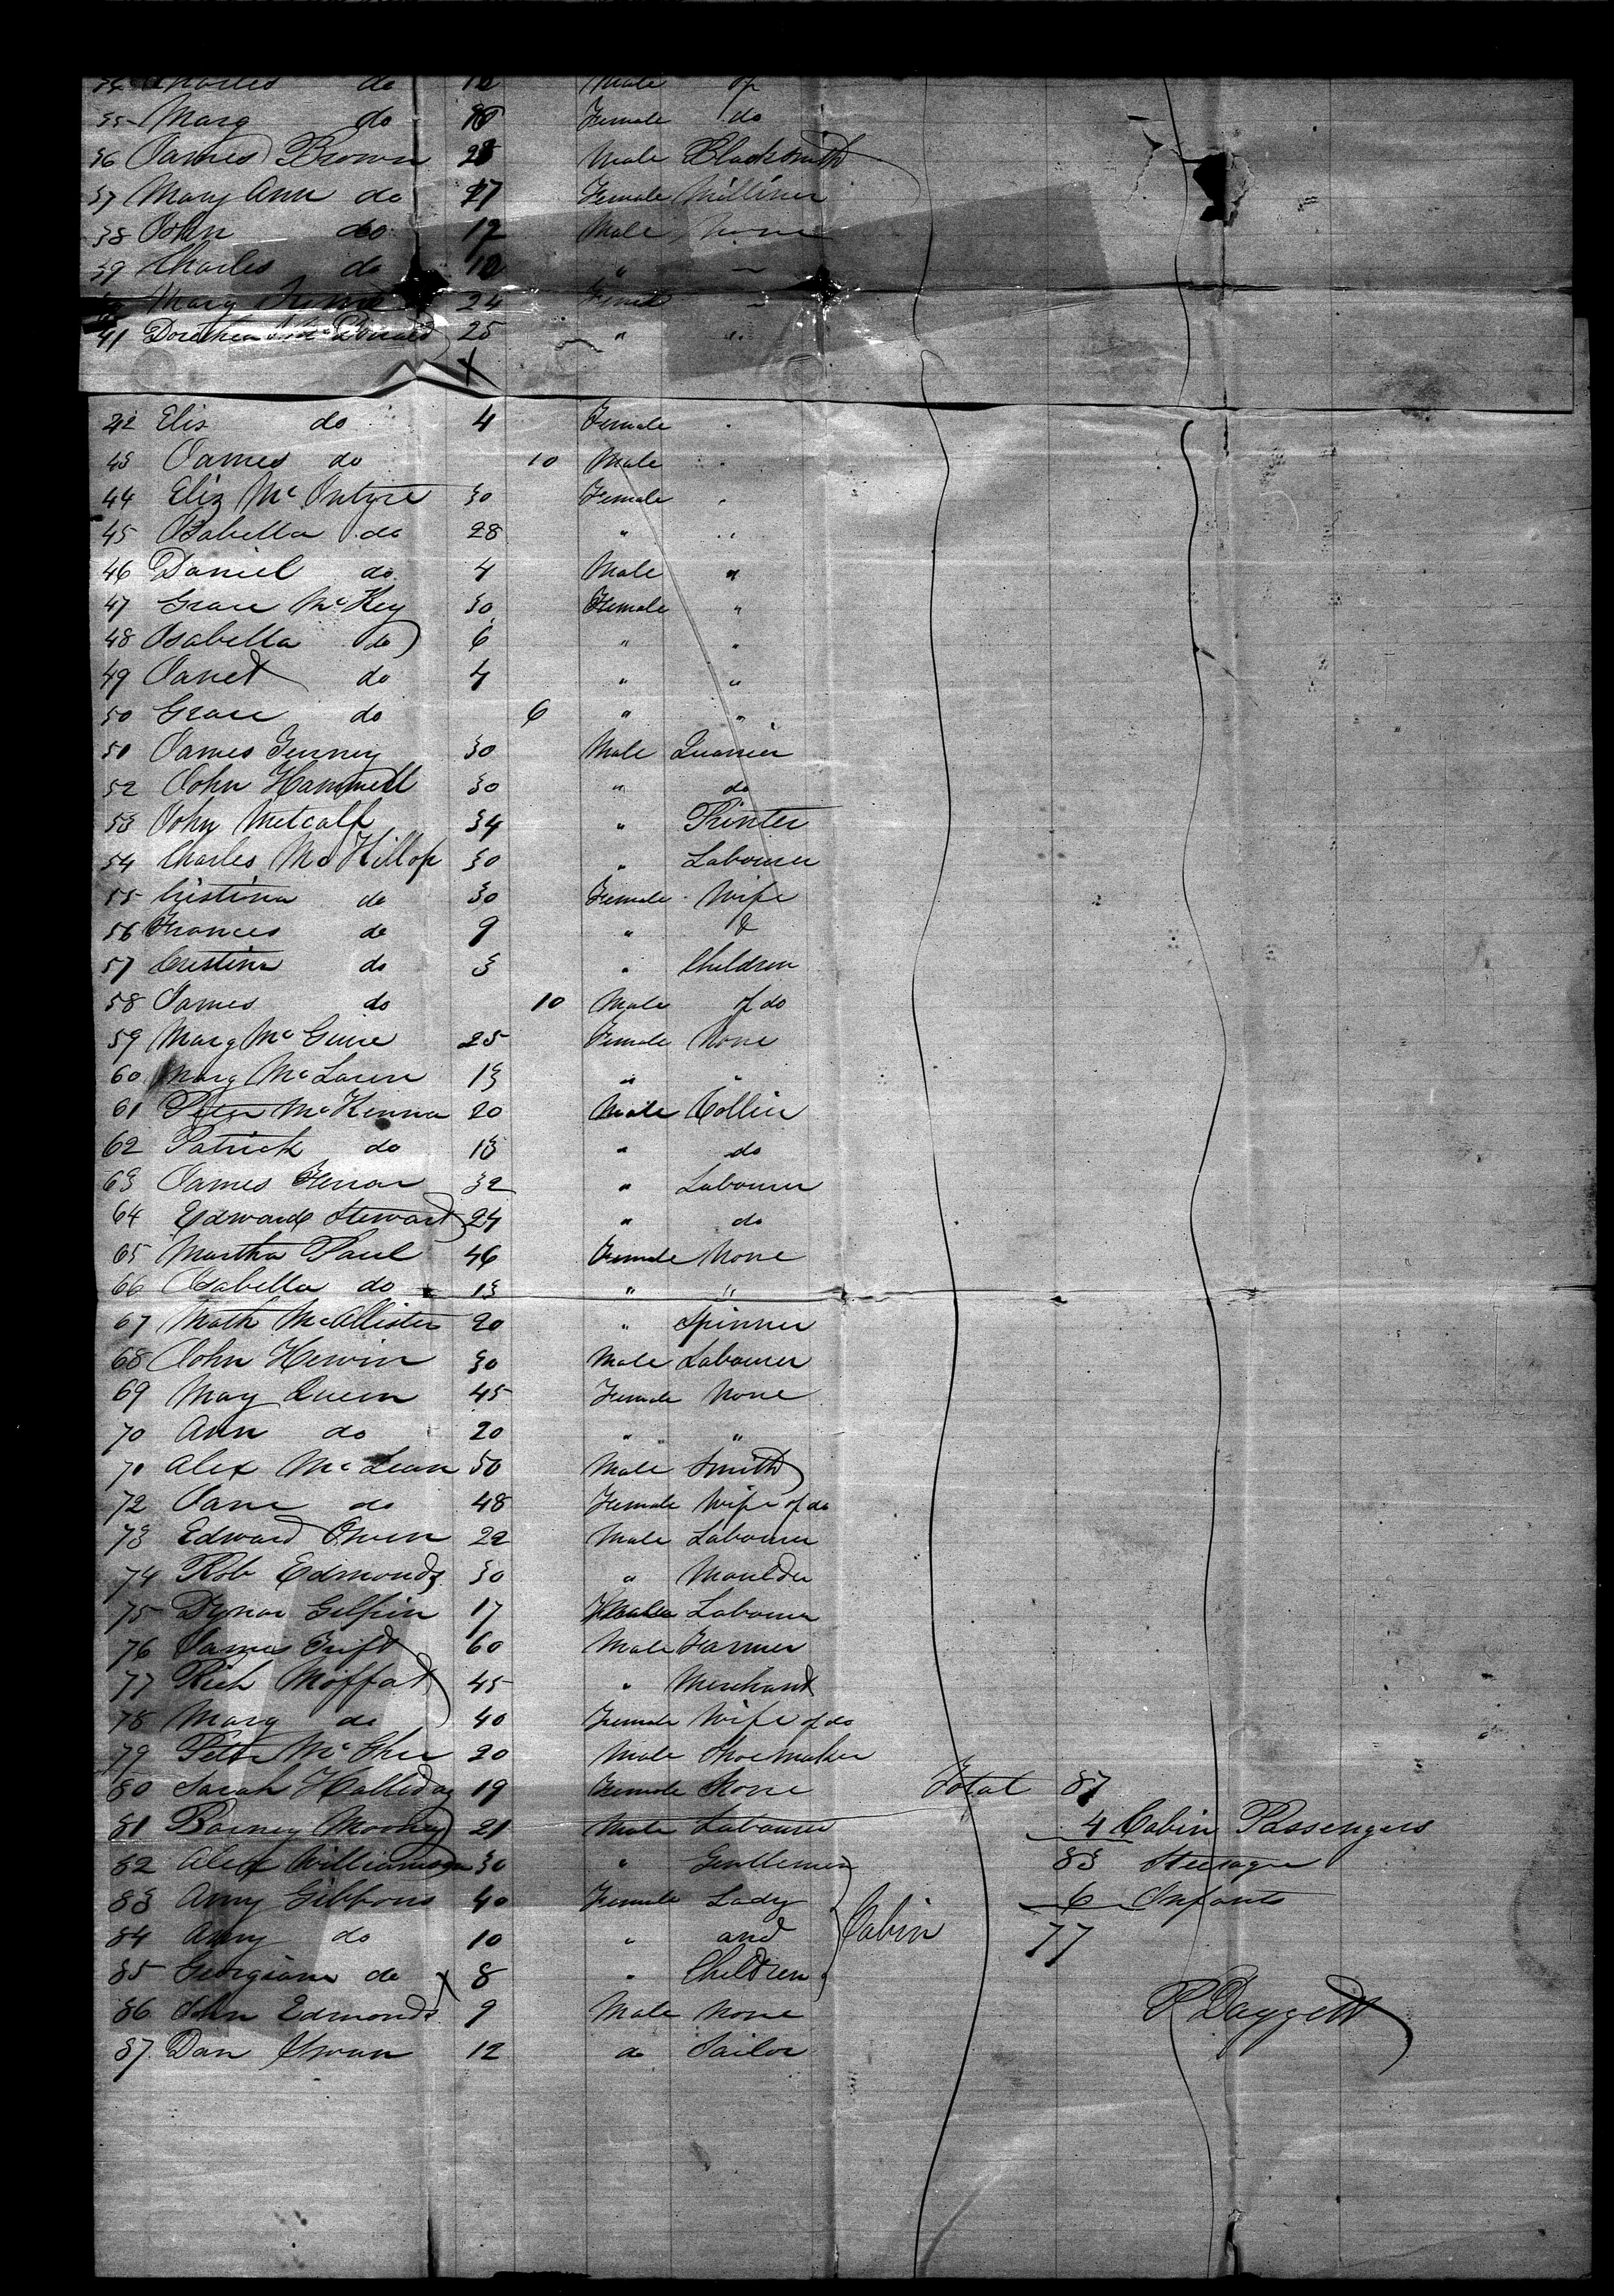 34 Charles do 12 Male of
35 Marg do Female do
36 James Brown 28 Male Blacksmith
37 Mary Ann do 27 Female Milliner
38 John do 12 Male None
39 Charles do 10 "
Mary 24 Female
41 McDonald 25 " "
42 Elis do 4 Female
43 James do 10 Male
44 Eliz McIntyre 30 Female
45 Isabella do 28 " "
46 Daniel do 4 Male "
47 Grace McKey 30 Female "
48 Isabella do 6 " "
49 Janet do 4 " "
50 Grace do 6 " "
51 James 30 Male Quarrier
52 John Hammell 30 " do
53 John Metcalf 34 " Printer
54 Charles McKillop 30 " Labourer
55 Cristina do 30 Female Wife
56 Frances do 9 " &
57 Cristina do 3 " Children
58 James do 10 Male of do
59 Marg McGuire 25 Female None
60 Marg McLaren 13 " "
61 Peter McKenna 20 Male Collier
62 Patrick do 18 " do
63 James Ferrar 32 " Labourer
64 Edward Stewart 24 " do
65 Martha Paul 46 Female None
66 Isabella do 13 " "
67 Math McAllister 20 " Spinner
68 John Kerwin 30 Male Labourer
69 May Queen 45 Female None
70 Ann do 20 " "
71 Alex McLean 50 Male Smith
72 Jane do 48 Female Wife of do
73 Edward Owen 22 Male Labourer
74 Rob Edmonds 30 " Moulder
75 Gilpin 17 Labourer
76 James 60 Male Farmer
77 Rich Moffat 45 " Merchant
78 Marg do 40 Female Wife of do
79 Peter McGhee 20 Male Shoemaker
80 Sarah Halliday 19 Female None Total 87
81 Barney Mooney 21 Male Labourer 4 Cabin Passengers
82 Alex Williamson 30 " Gentlemen 83 Steerage
83 Amy Gibbons 40 Female Lady 6 Infants
84 Amy do 10 " and Cabin 77
85 Georgiana do 8 " Children
86 John Edmonds 9 Male None P Daggett
87 Dan Swan 12 do Sailor